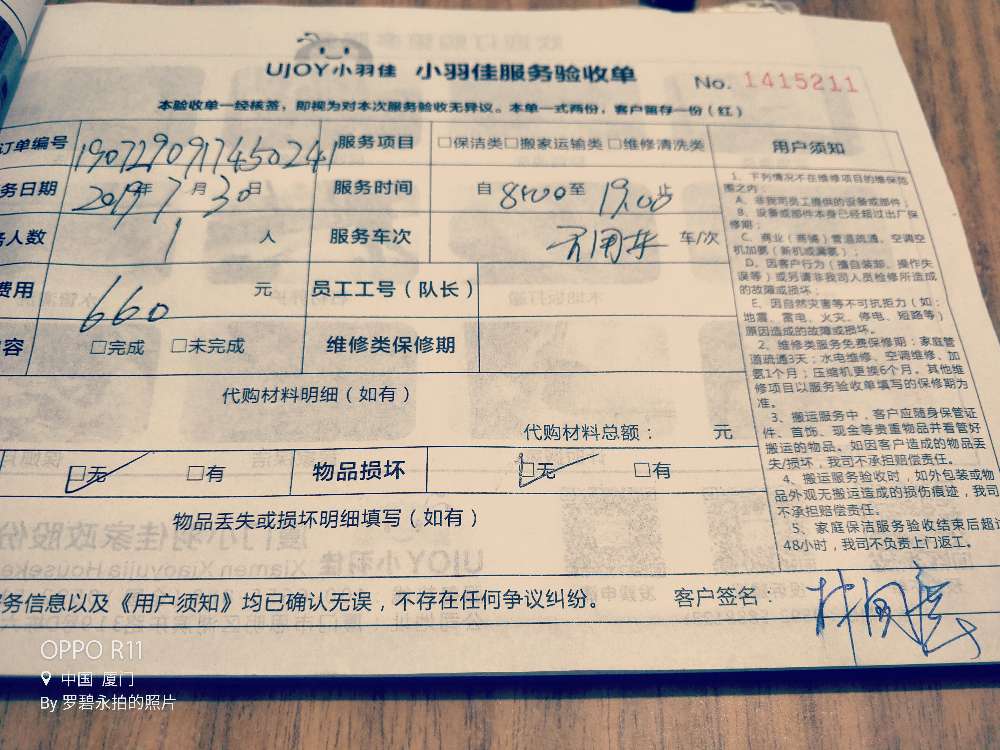 UJOY小羽佳 小羽佳服务验收单 No. 1415211
本验收单一经核签，即视为对本次服务验收无异议。本单一式两份，客户留存一份（红）
订单编号 190729091745024 服务项目 □保洁类□搬家运输类 □维修清洗类
务日期 2019年7月30日 服务时间 自 8:00至 19:00止
务人数 1人 服务车次 不用车 车/次
费用 660 元 员工工号（队长）
容 □完成 □未完成 维修类保修期
代购材料明细（如有）
代购材料总额： 元
□无 □有 物品损坏 □无 □有
物品丢失或损坏明细填写（如有）
务信息以及《用户须知》均已确认无误，不存在任何争议纠纷。 客户签名：
用户须知
1、下列情况不在维修项目的维保范
围之内：
A、非我司员工提供的设备或部件；
B、设备或部件本身已经超过出厂保
修期；
C、商业（商铺）管道疏通、空调空
机加氨（新机或漏氨）；
D、因客户行为（擅自装卸、操作失
误等）或另请非我司人员检修所造成
的故障或损坏；
E、因自然灾害等不可抗拒力（如：
地震、雷电、火灾、停电、短路等）
原因造成的故障或损坏。
2、维修类服务免费保修期：家庭管
道疏通3天；水电维修、空调维修、加
氨1个月；压缩机更换6个月。其他维
修项目以服务验收单填写的保修期为
准。
3、搬运服务中，客户应随身保管证
件、首饰、现金等贵重物品并看管好
搬运的物品。如因客户造成的物品丢
失/损坏，我司不承担赔偿责任。
4、搬运服务验收时，如外包装或物
品外观无搬运造成的损伤痕迹，我司
不承担赔偿责任。
5、家庭保洁服务验收结束后超过
48小时，我司不负责上门返工。
OPPO R11
中国 厦门
By 罗碧永拍的照片